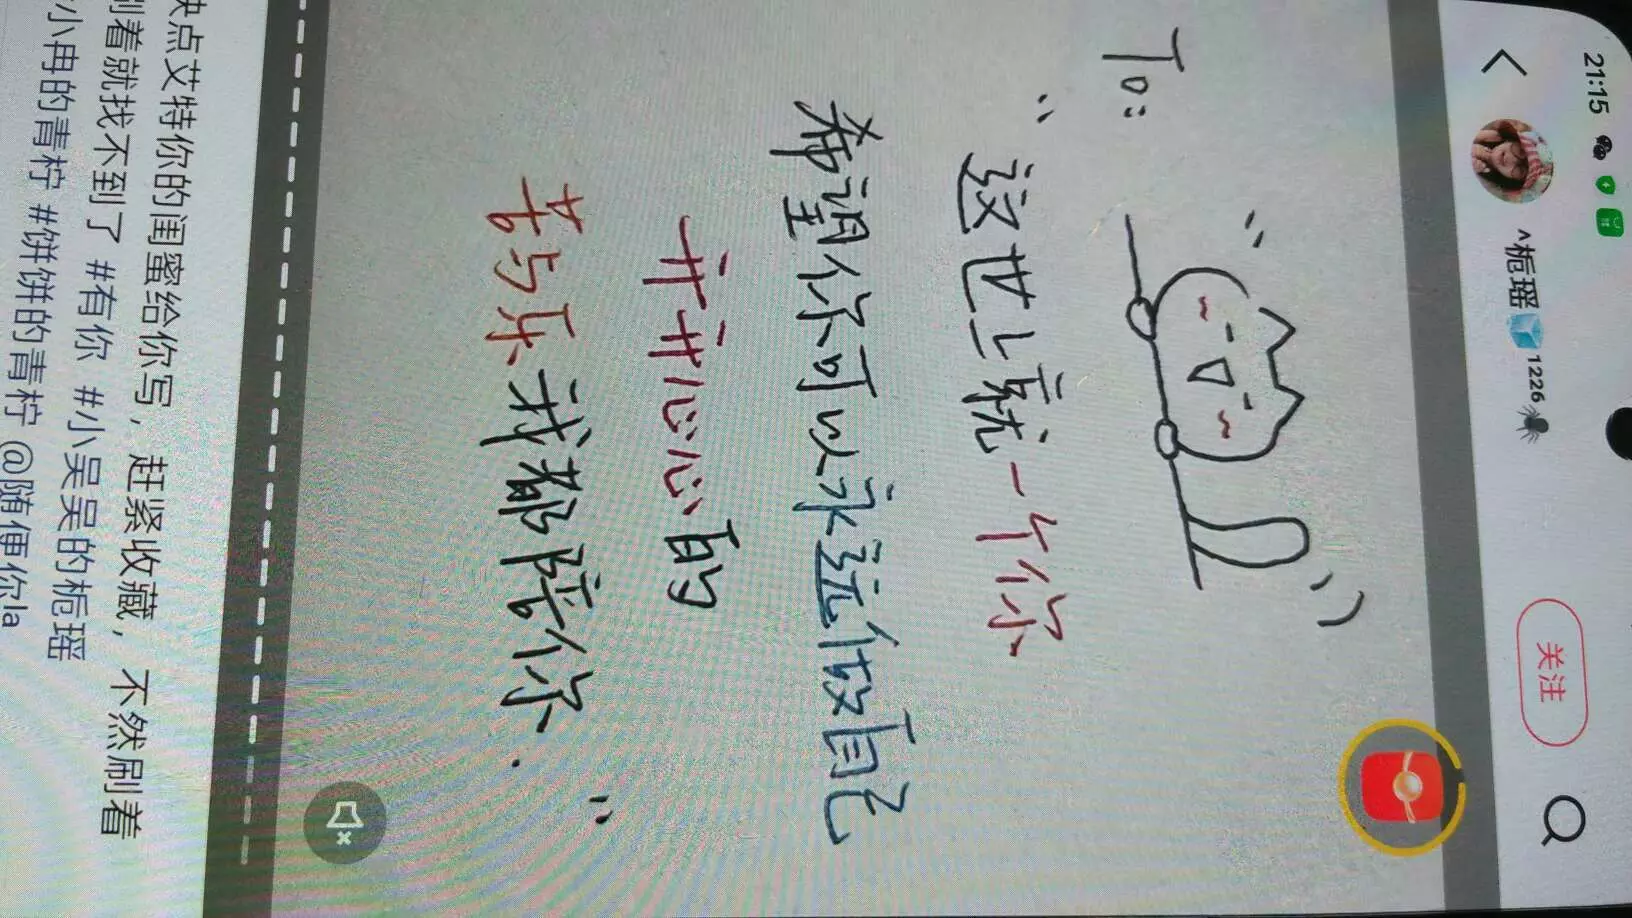 21:15
^栀瑶🧊1226🕷
关注
To:
"这世上就一个你
希望你可以永远做自己
开开心心的
苦与乐我都陪你."
快点艾特你的闺蜜给你写，赶紧收藏，不然刷着
刷着就找不到了 #有你 #小吴吴的栀瑶
小冉的青柠 #饼饼的青柠 @随便你la